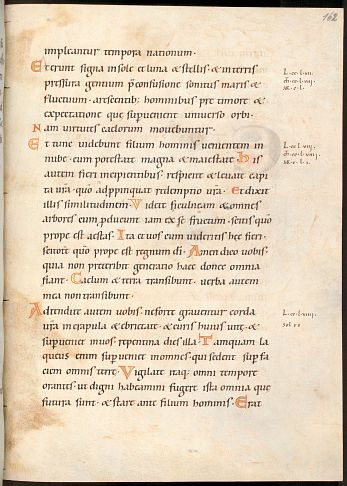 162
impleantur tempora nationum.
Et erunt signa insole et luna & stellis. & interris
pressura gentium p̄ confusione sonitus maris &
fluctuum. arescentib; hominibus pre timore &
expectatione que supuenient universo orbi.
Nam virtutes caelorum movebuntur.
Et tunc videbunt filium hominis venientem in
nube. cum potestate magna & maiestate. His
autem fieri incipientibus. respicite & levate capi
ta vr̄a. quō adppinquat redemptio vr̄a. Et dixit
illis similitudinem. Videte ficulneam & omnes
arbores cum pducunt iam ex se fructum. scitis quō
prope est aestas. Ita et vos cum videritis hęc fieri.
scitote quō prope est regnum dī. Amen dico vobis.
quia non preteribit generatio haec donec omnia
fiant. Caelum & terra transibunt. verba autem
mea non transibunt.
Adtendite autem vobis. neforte graventur corda
vr̄a in crapula & ebrietate. & curis huius vitę. &
supveniat invos repentina dies illa. Tamquam la
queus enim supveniet inomnes. qui sedent sup fa
ciem omnis terrę. Vigilate itaq; omni tempore
orantes. ut digni habeamini fugere ista omnia que
futura sunt. & stare ante filium hominis. Erat